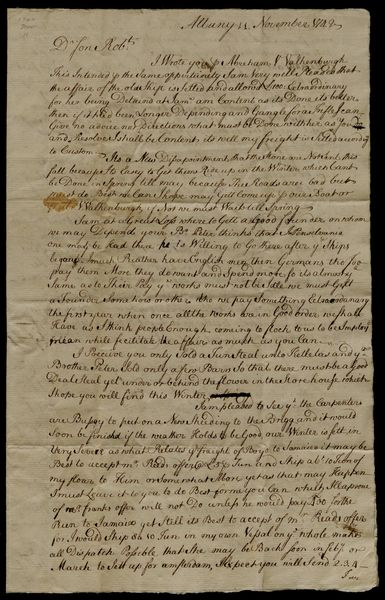 Albany 11. November 1742
Dr. Son Robt.
I Wrote you p Abraham V. Valkenburgh
This is Intended p the Same oppertunity I am Very well Pleased that
the affair of the old Ship is settled and allowd £100: Extraordinary
for her being Detaind at Jam. am Content as its Done its better
then if it had been Longer Depending and Gangle for a Trifle, I can
Give no advice nor Directions what must be Done with her as You
and Resolve I shall be Content its well my freight is Settled according
to Custom.
Its a New Disappointment that the Stone are Not Sent this
fall because its Easey to Get them up in the Winter which Cant
be Done in Spring till may because the Roads are bad but
must do Best we Can I hope may Get Some up p Cares boat or
V Valkenburghs if not we must Wait till Spring
I am at a Great Loss where to Gett a good founder on whom
we may Depend your Br. Peter thinks that in Pensilvania
one may be had then he is Willing to Go there after ye Ships
be gone I much Rather have English men then Germans tho I so
pay them More they do want and Spend more so its almost ye
Same as to their Pay ye works must not be Idle we must Gett
a founder Some how or other tho we pay Something Extraordanary
the first year when once all the works are in Good order we shall
Have as I think people Enough coming to flock to us to be Imploy
mean while fecilitate the affair as much as you Can
I Perceive you only Sold a Tun Steal unto Kettletas and yr
Brother Peter Sold only a few Barrs So that there must be a Good
Deal Steal yet under or behind the flower in the Store house which
I hope you will find this Winter
I am pleased to See yt. the Carpenters
are Bussy to put on a New Sheiding to the Brigg and it would
Soon be finished if the weather Holds to be Good our Winter is sett in
Very Severe as what Relates ye freight of Boys to Jamaica it may be
Best to accept mr. Reads offer @ £5 p Tun and Ship ab. 10 Tons of
my flour to Him or Somewhat More yet as that may Happen
I must Leave it to you to do Best for me you Can which I approve
of mr. franks offer will not Do unless he would pay £30 for the
Run to Jamaica yet Still its Best to accept of mr. Reads offer
for I would Ship 8 h 10 Tun in my own Vessel on ye. whole make
all Dispatch Possible that She may be Back soon in feb. or
March to Sett up for amsterdam, I Expect you will Send 2:3:4